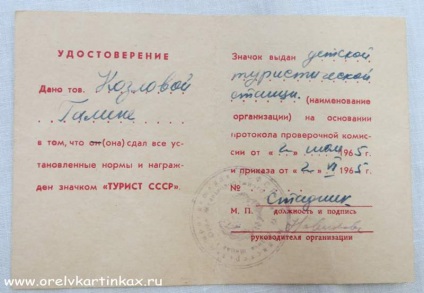 УДОСТОВЕРЕНИЕ
Дано тов. Козловой
Галине
в том, что он(она) сдал все ус-
тановленные нормы и награж-
ден значком «ТУРИСТ СССР».
Значок выдан детской
туристической
станции (наименование
организации) на основании
протокола проверочной комис-
сии от «2» мая 1965г.
и приказа от «2» VI 1965г.
№
М. П. должность и подпись
руководителя организации
www.orelvkartinkax.ru